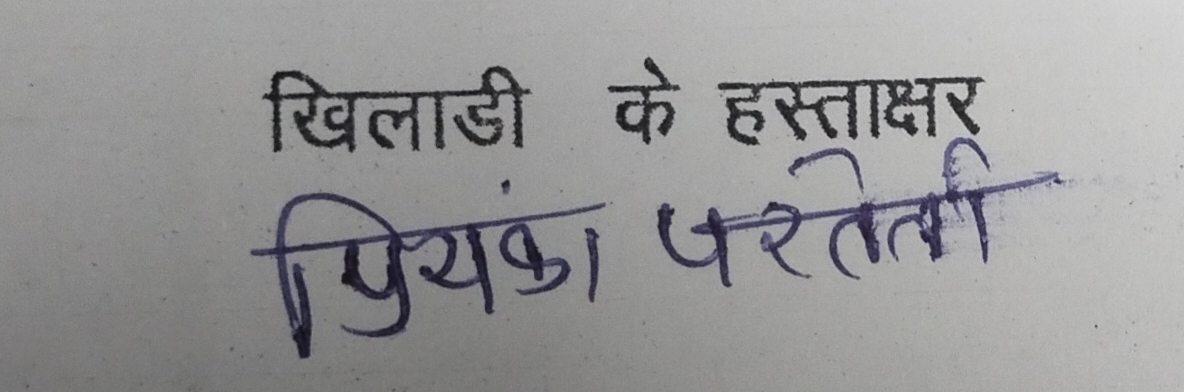 खिलाडी के हस्ताक्षर
प्रियंका परतेती